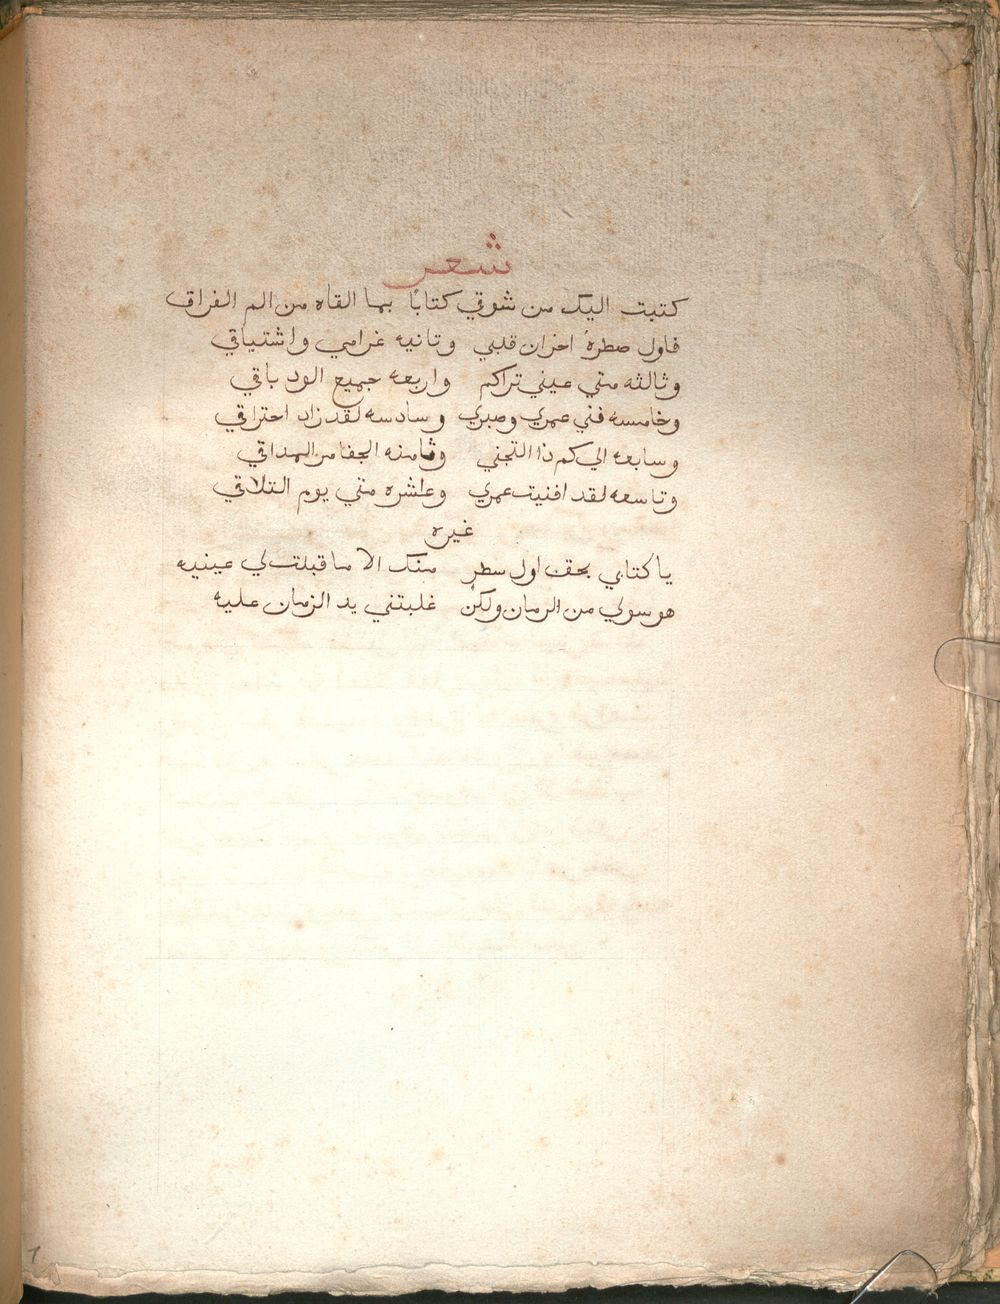 شعر
كتبت اليك من شوقي كتابًا بما القاه من الم الفراق
فاول صطره احزان قلبي وتانيه غرامي واشتياقي
وثالثه متي عيني تراكم واربعه جميع الود باقي
وخامسه فني عمري وصبري وسادسه لقد زاد احتراقي
وسابعه الي كم ذا التجني وثامنه الجفا مر المداقي
وتاسعه لقد افنيت عمري وعاشره متي يوم التلاقي
غيره
يا كتابي بحق اول سطر منك الا ما قبلت لي عينيه
هو سولي من الزمان ولكن غلبتني يد الزمان عليه
1